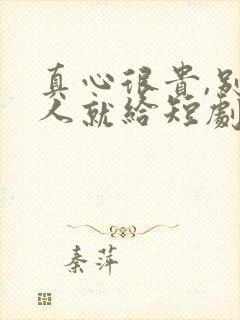 真心很貴,別
人就給短劇
秦萍